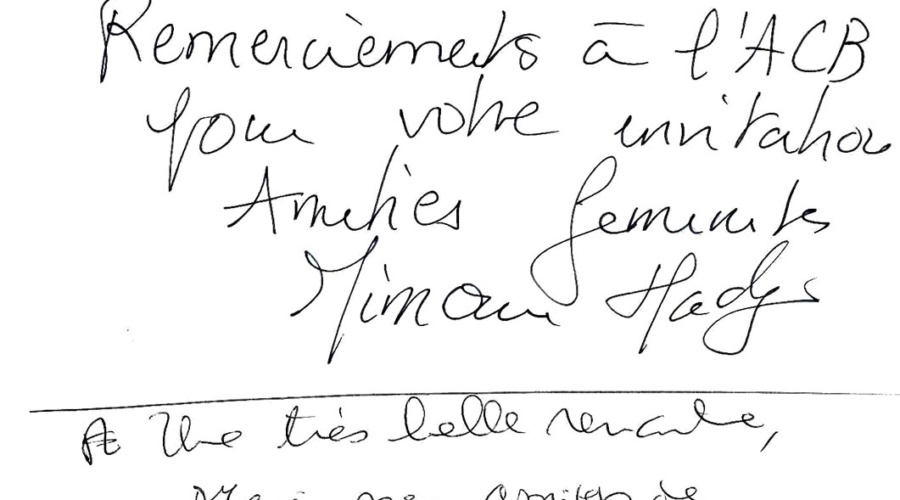 Remerciements à l'ACB
pour votre invitation
Amitiés féministes
Mimouna Hadjs
Une très belle rencontre,